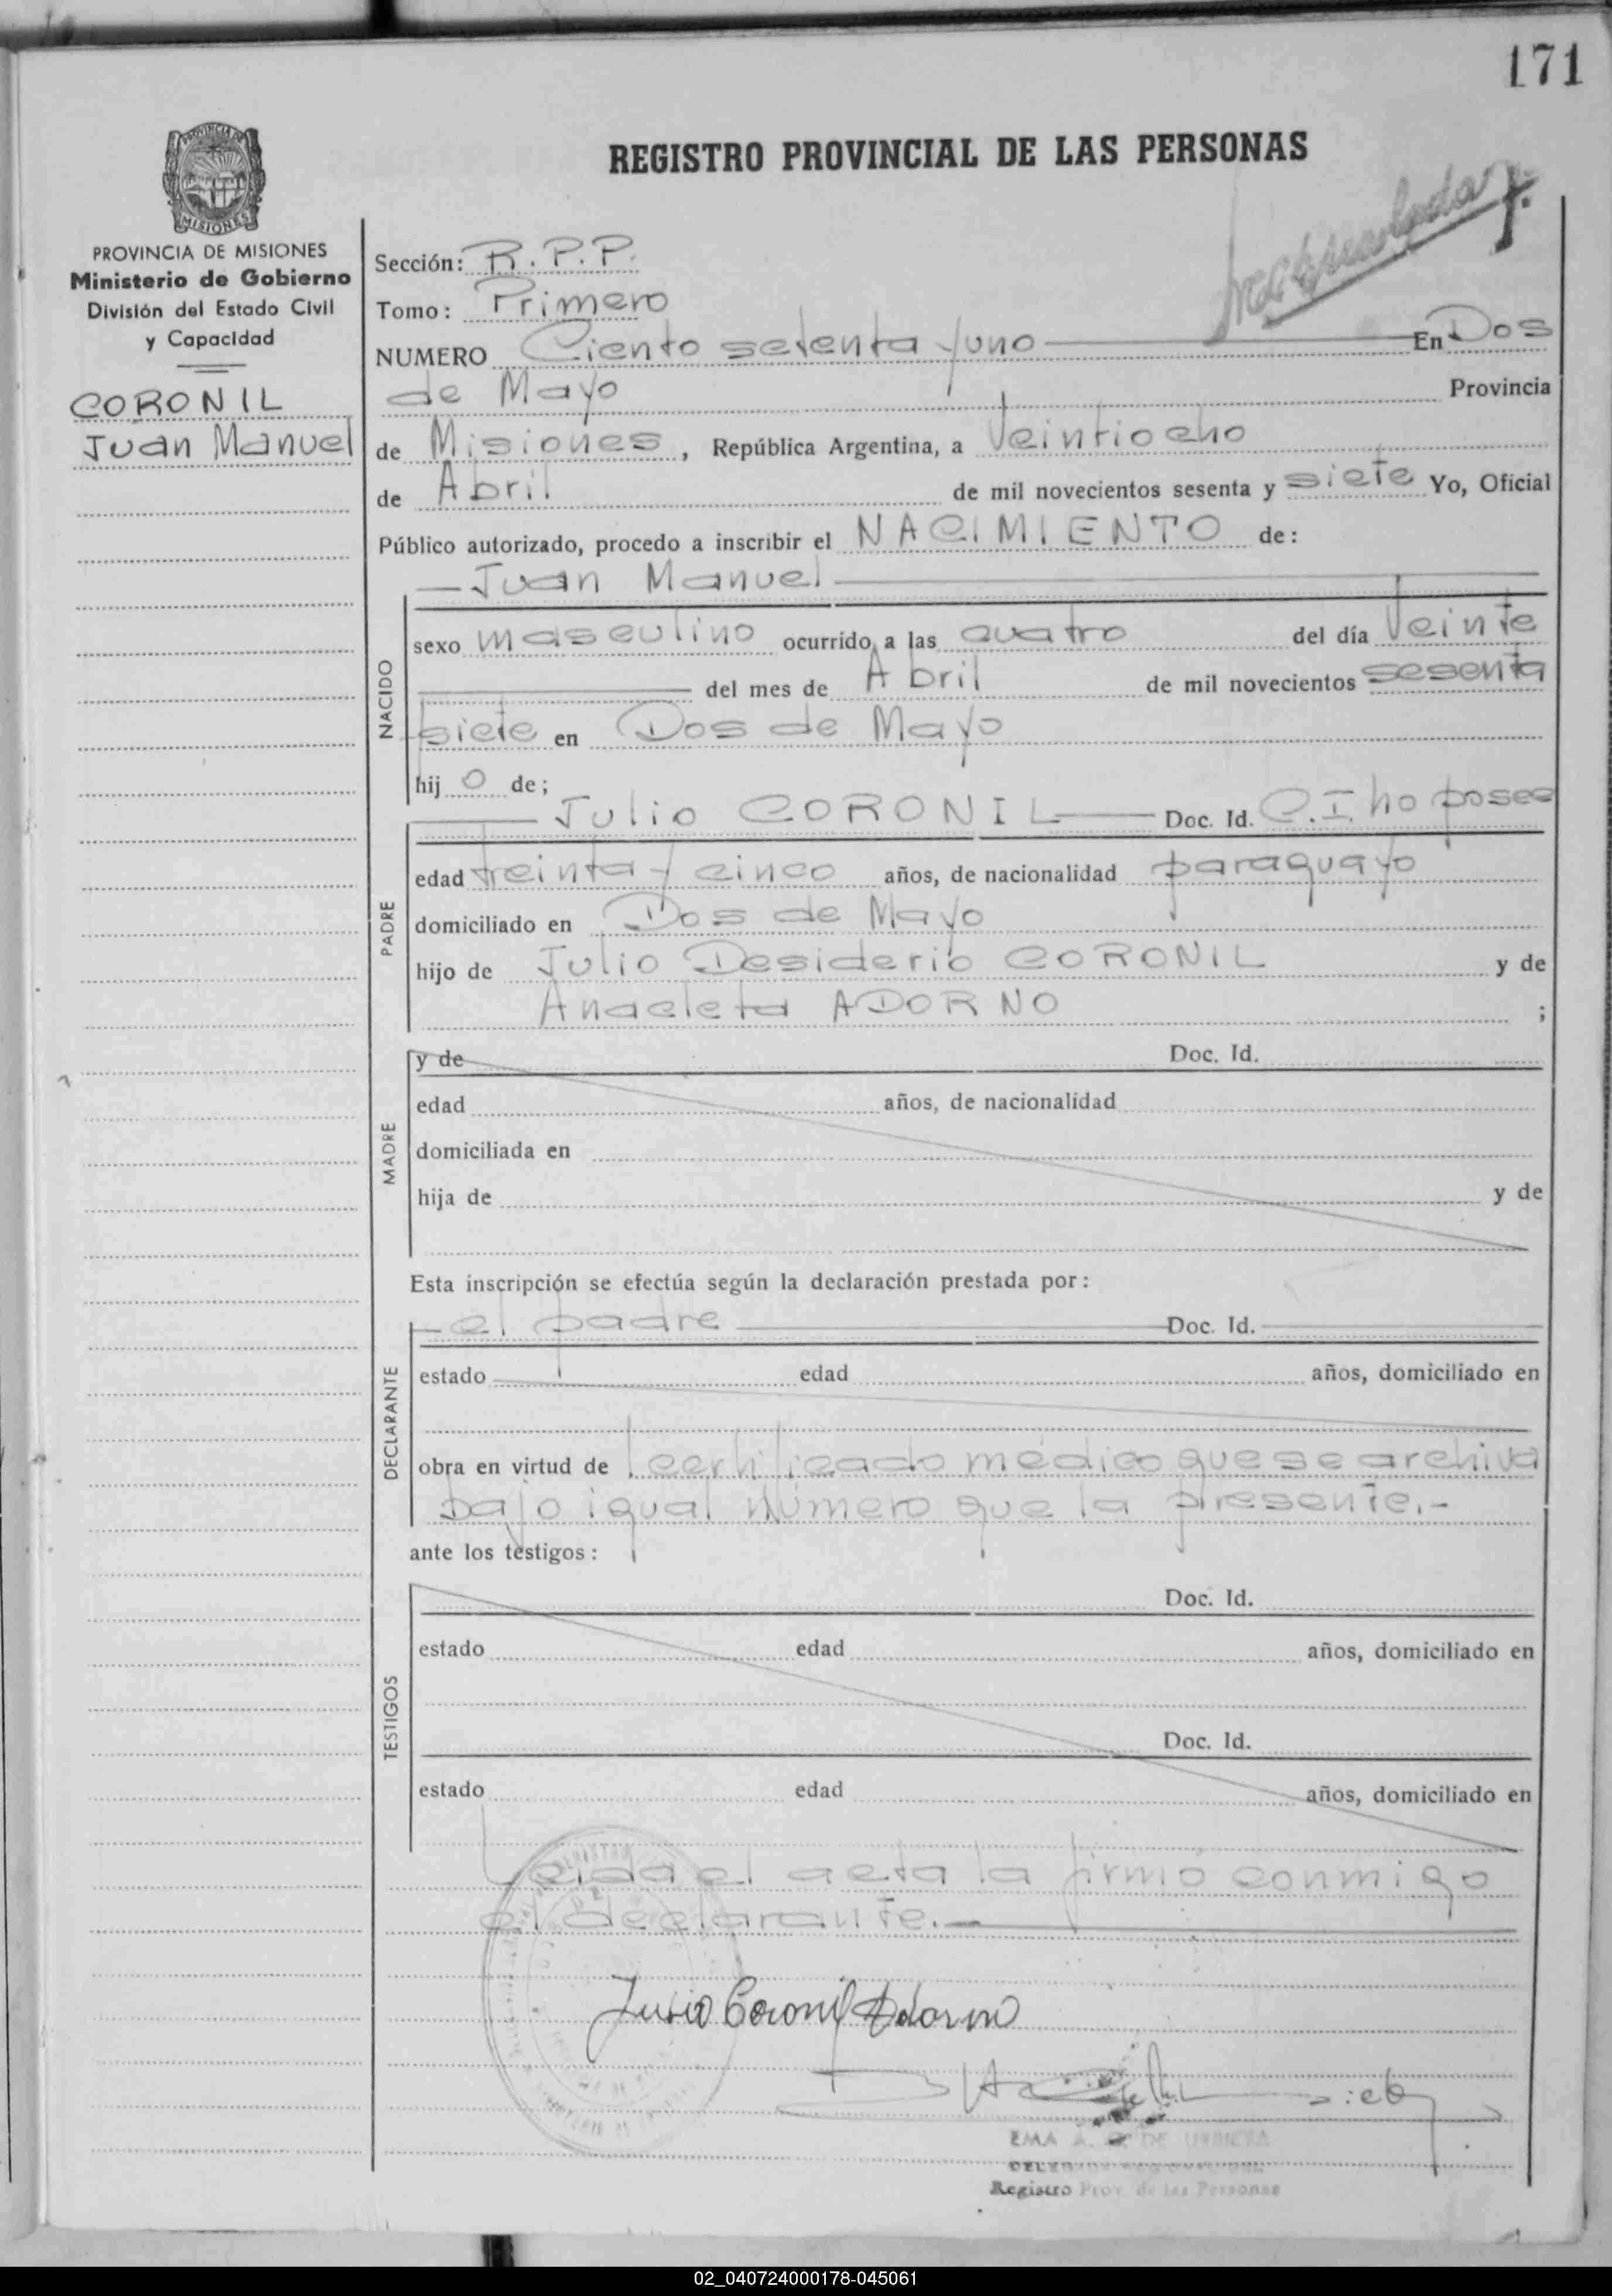 171
REGISTRO PROVINCIAL DE LAS PERSONAS
PROVINCIA DE MISIONES
Ministerio de Gobierno
División del Estado Civil
y Capacidad
CORONIL
Juan Manuel
Sección: R.P.P.
Tomo: Primero
NUMERO Ciento setenta y uno En Dos
de Mayo Provincia
de Misiones, República Argentina, a Veintiocho
de Abril de mil novecientos sesenta y siete Yo, Oficial
Público autorizado, procedo a inscribir el NACIMIENTO de:
Juan Manuel
NACIDO
sexo masculino ocurrido a las cuatro del día Veinte
del mes de Abril de mil novecientos sesenta
siete en Dos de Mayo
hij o de;
PADRE
Julio CORONIL Doc. Id. C.I. no posee
edad treinta y cinco años, de nacionalidad paraguayo
domiciliado en Dos de Mayo
hijo de Julio Desiderio CORONIL y de
Anacleta ADORNO ;
MADRE
y de Doc. Id.
edad años, de nacionalidad
domiciliada en
hija de y de
Esta inscripción se efectúa según la declaración prestada por:
DECLARANTE
el padre Doc. Id.
estado edad años, domiciliado en
obra en virtud de certificado médico que se archiva
bajo igual número que la presente.-
ante los testigos:
TESTIGOS
Doc. Id.
estado edad años, domiciliado en
Doc. Id.
estado edad años, domiciliado en
Leida el acta la firmó conmigo
el declarante.-
Julio Coronil Adorno
EMA A. DE URBIETA
Registro Prov. de las Personas
02_040724000178-045061